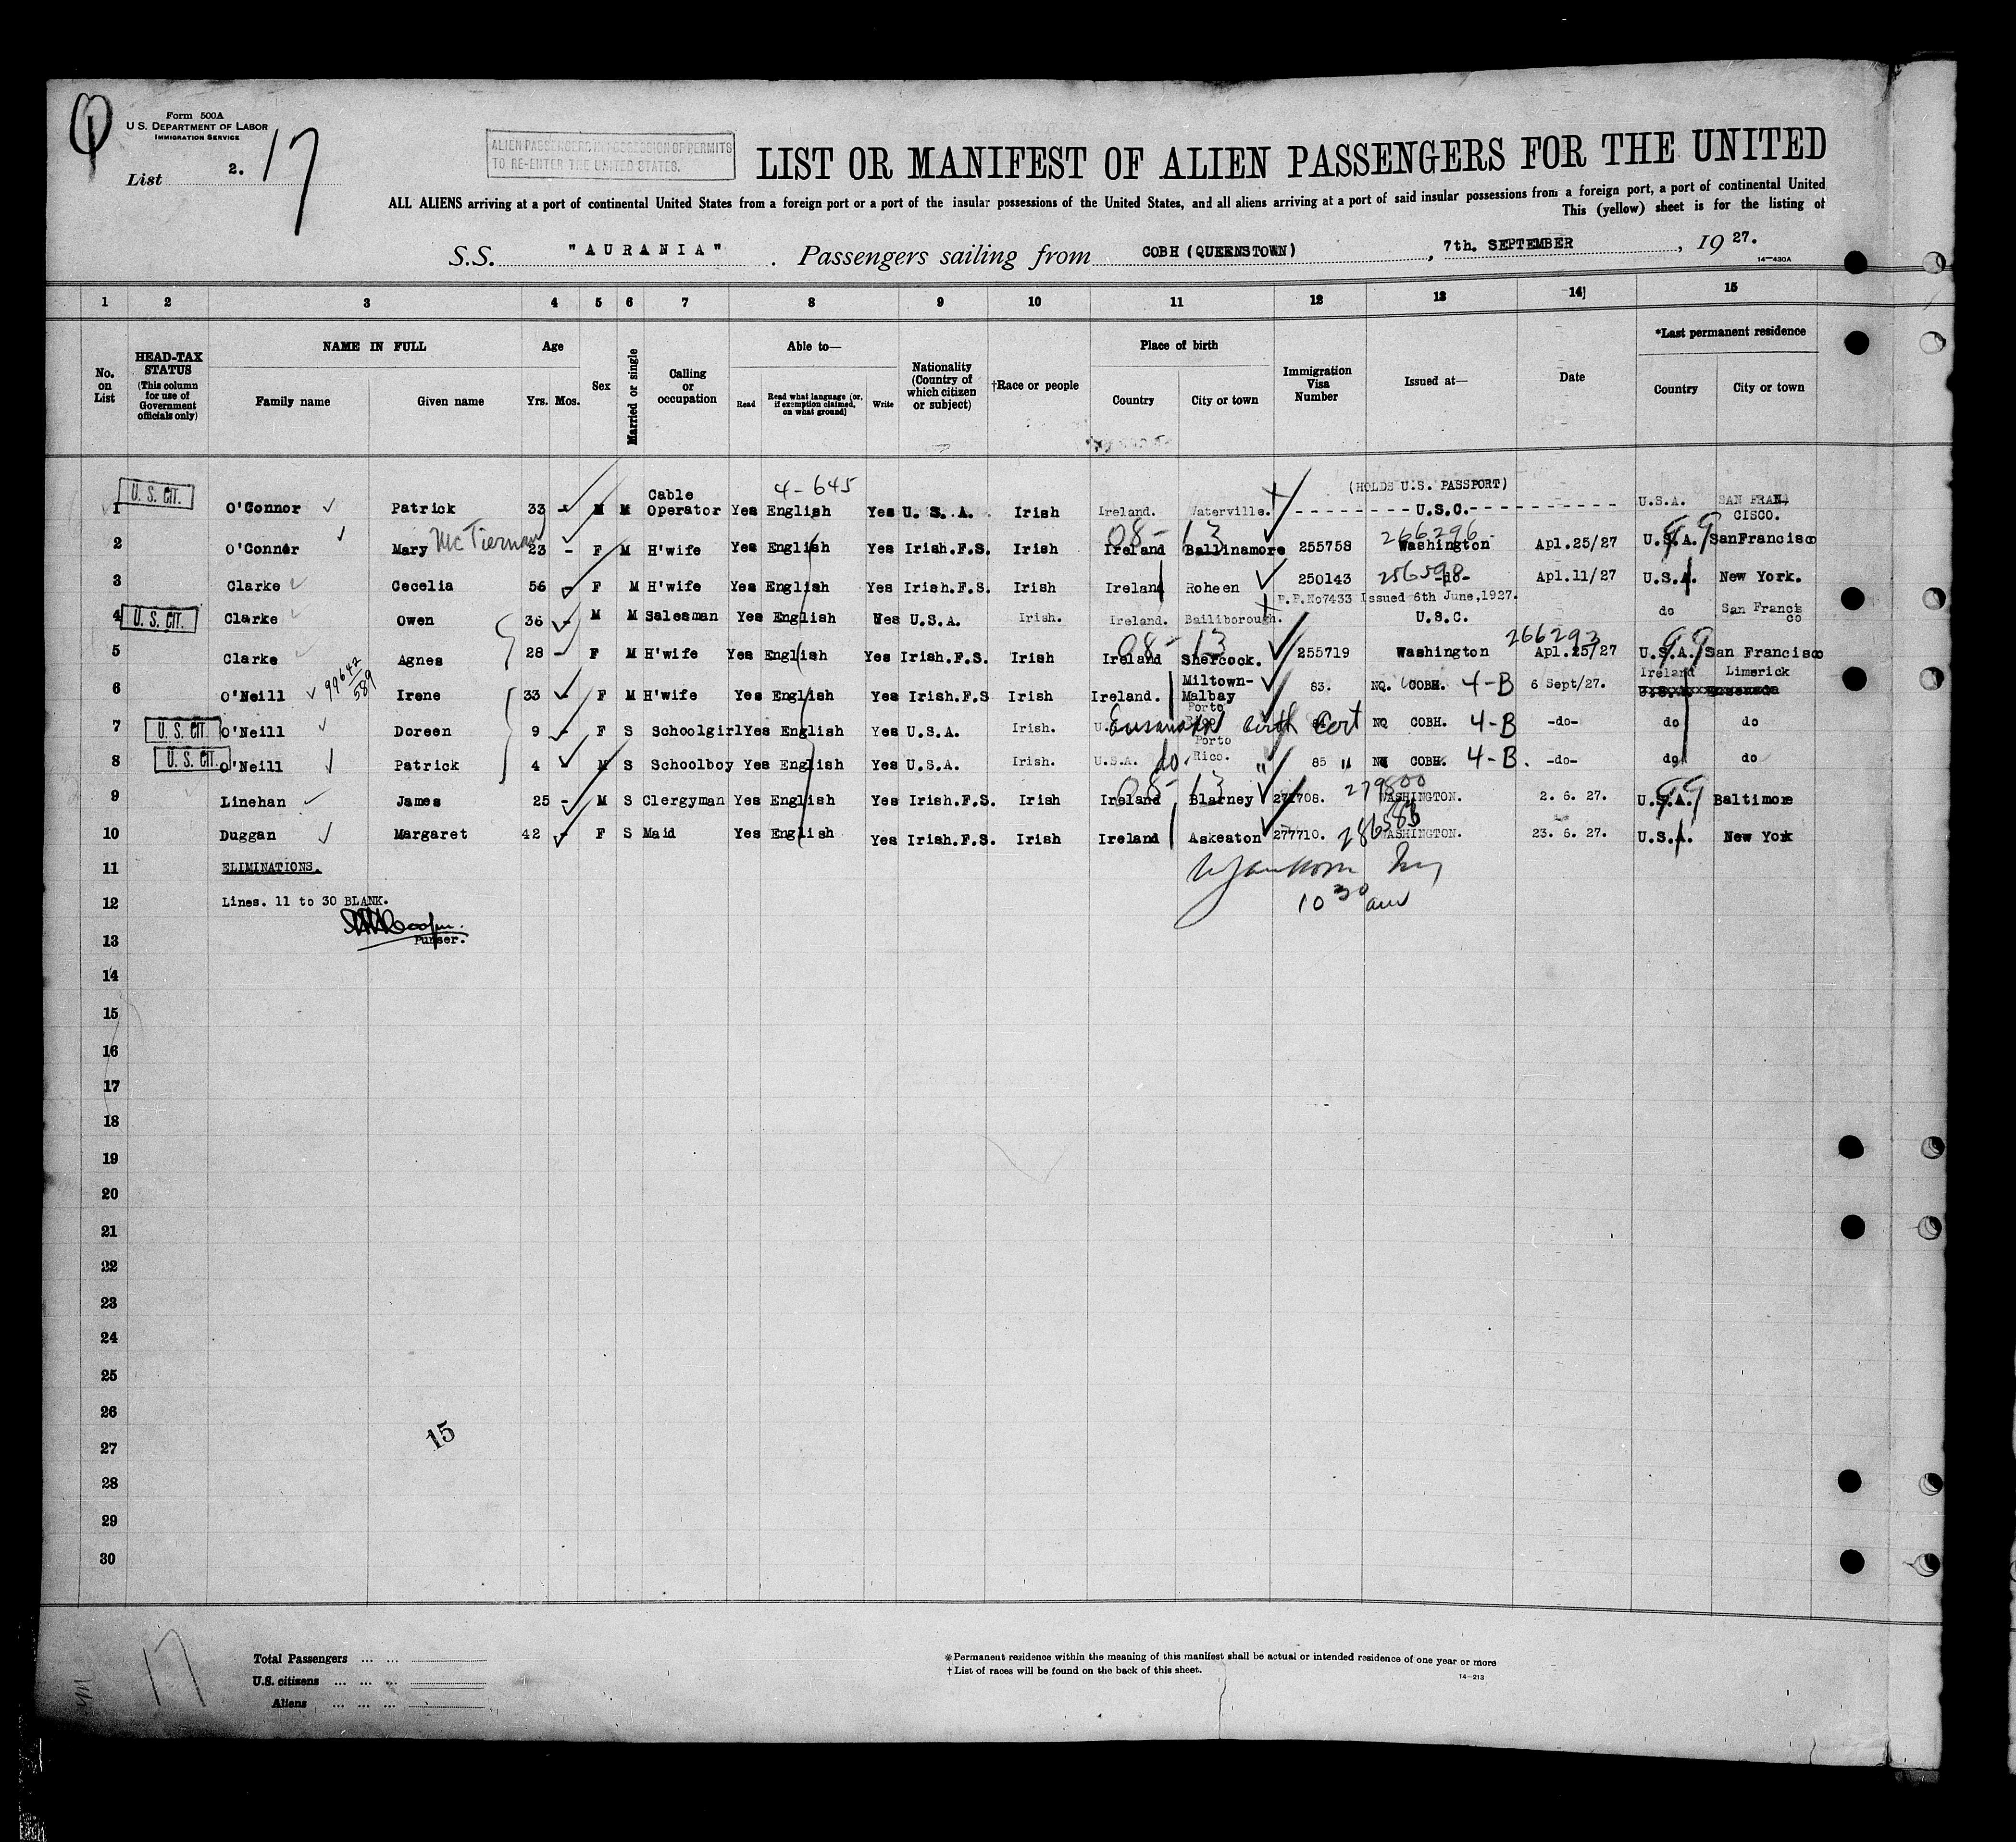 Form 500A
U.S. DEPARTMENT OF LABOR
IMMIGRATION SERVICE
List 2. 17
ALIEN PASSENGERS IN POSSESSION OF PERMITS
TO RE-ENTER THE UNITED STATES.
LIST OR MANIFEST OF ALIEN PASSENGERS FOR THE UNITED
ALL ALIENS arriving at a port of continental United States from a foreign port or a port of the insular possessions of the United States, and all aliens arriving at a port of said insular possessions from a foreign port, a port of continental United
This (yellow) sheet is for the listing of
S.S. "AURANIA". Passengers sailing from COBH (QUEENSTOWN), 7th. SEPTEMBER, 19 27.
14—430A
1 2 3 4 5 6 7 8 9 10 11 12 13 14 15
No. on List
HEAD-TAX STATUS (This column for use of Government officials only)
NAME IN FULL Family name Given name
Age Yrs. Mos.
Sex
Married or single
Calling or occupation
Able to— Read Read what language (or, if exemption claimed, on what ground) Write
Nationality (Country of which citizen or subject)
†Race or people
Place of birth Country City or town
Immigration Visa Number
Issued at—
Date
*Last permanent residence Country City or town
4-645
1 U.S. CIT. O'Connor Patrick 33 - M M Cable Operator Yes English Yes U.S.A. Irish Ireland. Waterville. (HOLDS U.S. PASSPORT) U.S.C. U.S.A. SAN FRANCISCO.
2 O'Connor Mary McTiernan 23 - F M H'wife Yes English Yes Irish.F.S. Irish Ireland Ballinamore 08- 13 255758 266296 Washington Apl.25/27 U.S.A. 99 SanFrancisco
3 Clarke Cecelia 56 - F M H'wife Yes English Yes Irish.F.S. Irish Ireland Roheen 250143 256598 -do- Apl.11/27 U.S.A. New York.
P.P.No7433 Issued 6th June,1927.
4 U.S. CIT. Clarke Owen 36 - M M Salesman Yes English Yes U.S.A. Irish. Ireland. Bailiborough. U.S.C. do San Francisco
5 Clarke Agnes 28 - F M H'wife Yes English Yes Irish.F.S. Irish Ireland Shercock. 08- 13 255719 Washington 266293 Apl.25/27 U.S.A. 99 San Francisco
6 O'Neill 99642/589 Irene 33 - F M H'wife Yes English Yes Irish.F.S Irish Ireland. Miltown-Malbay 83. NQ. COBH. 4-B 6 Sept/27. Ireland Limerick
7 U.S. CIT. O'Neill Doreen 9 - F S Schoolgirl Yes English Yes U.S.A. Irish. Porto Rico. Birth Cert NQ COBH. 4-B -do- do do
8 U.S. CIT. O'Neill Patrick 4 M S Schoolboy Yes English Yes U.S.A. Irish. U.S.A. do Porto Rico. " 85 " NQ COBH. 4-B. -do- do do
9 Linehan James 25 - M S Clergyman Yes English Yes Irish.F.S. Irish Ireland Blarney 08- 13 271708. 279800 WASHINGTON. 2. 6. 27. U.S.A. 99 Baltimore
10 Duggan Margaret 42 - F S Maid Yes English Yes Irish.F.S. Irish Ireland Askeaton 277710. 286583 WASHINGTON. 23. 6. 27. U.S.A. New York
11 ELIMINATIONS.
12 Lines. 11 to 30 BLANK.
10 30 am
13 Purser.
14
15
16
17
18
19
20
21
22
23
24
25
26
15
27
28
29
30
17
Total Passengers ... ...
U.S. citizens ... ... ...
Aliens ... ... ...
*Permanent residence within the meaning of this manifest shall be actual or intended residence of one year or more
†List of races will be found on the back of this sheet.
14—213